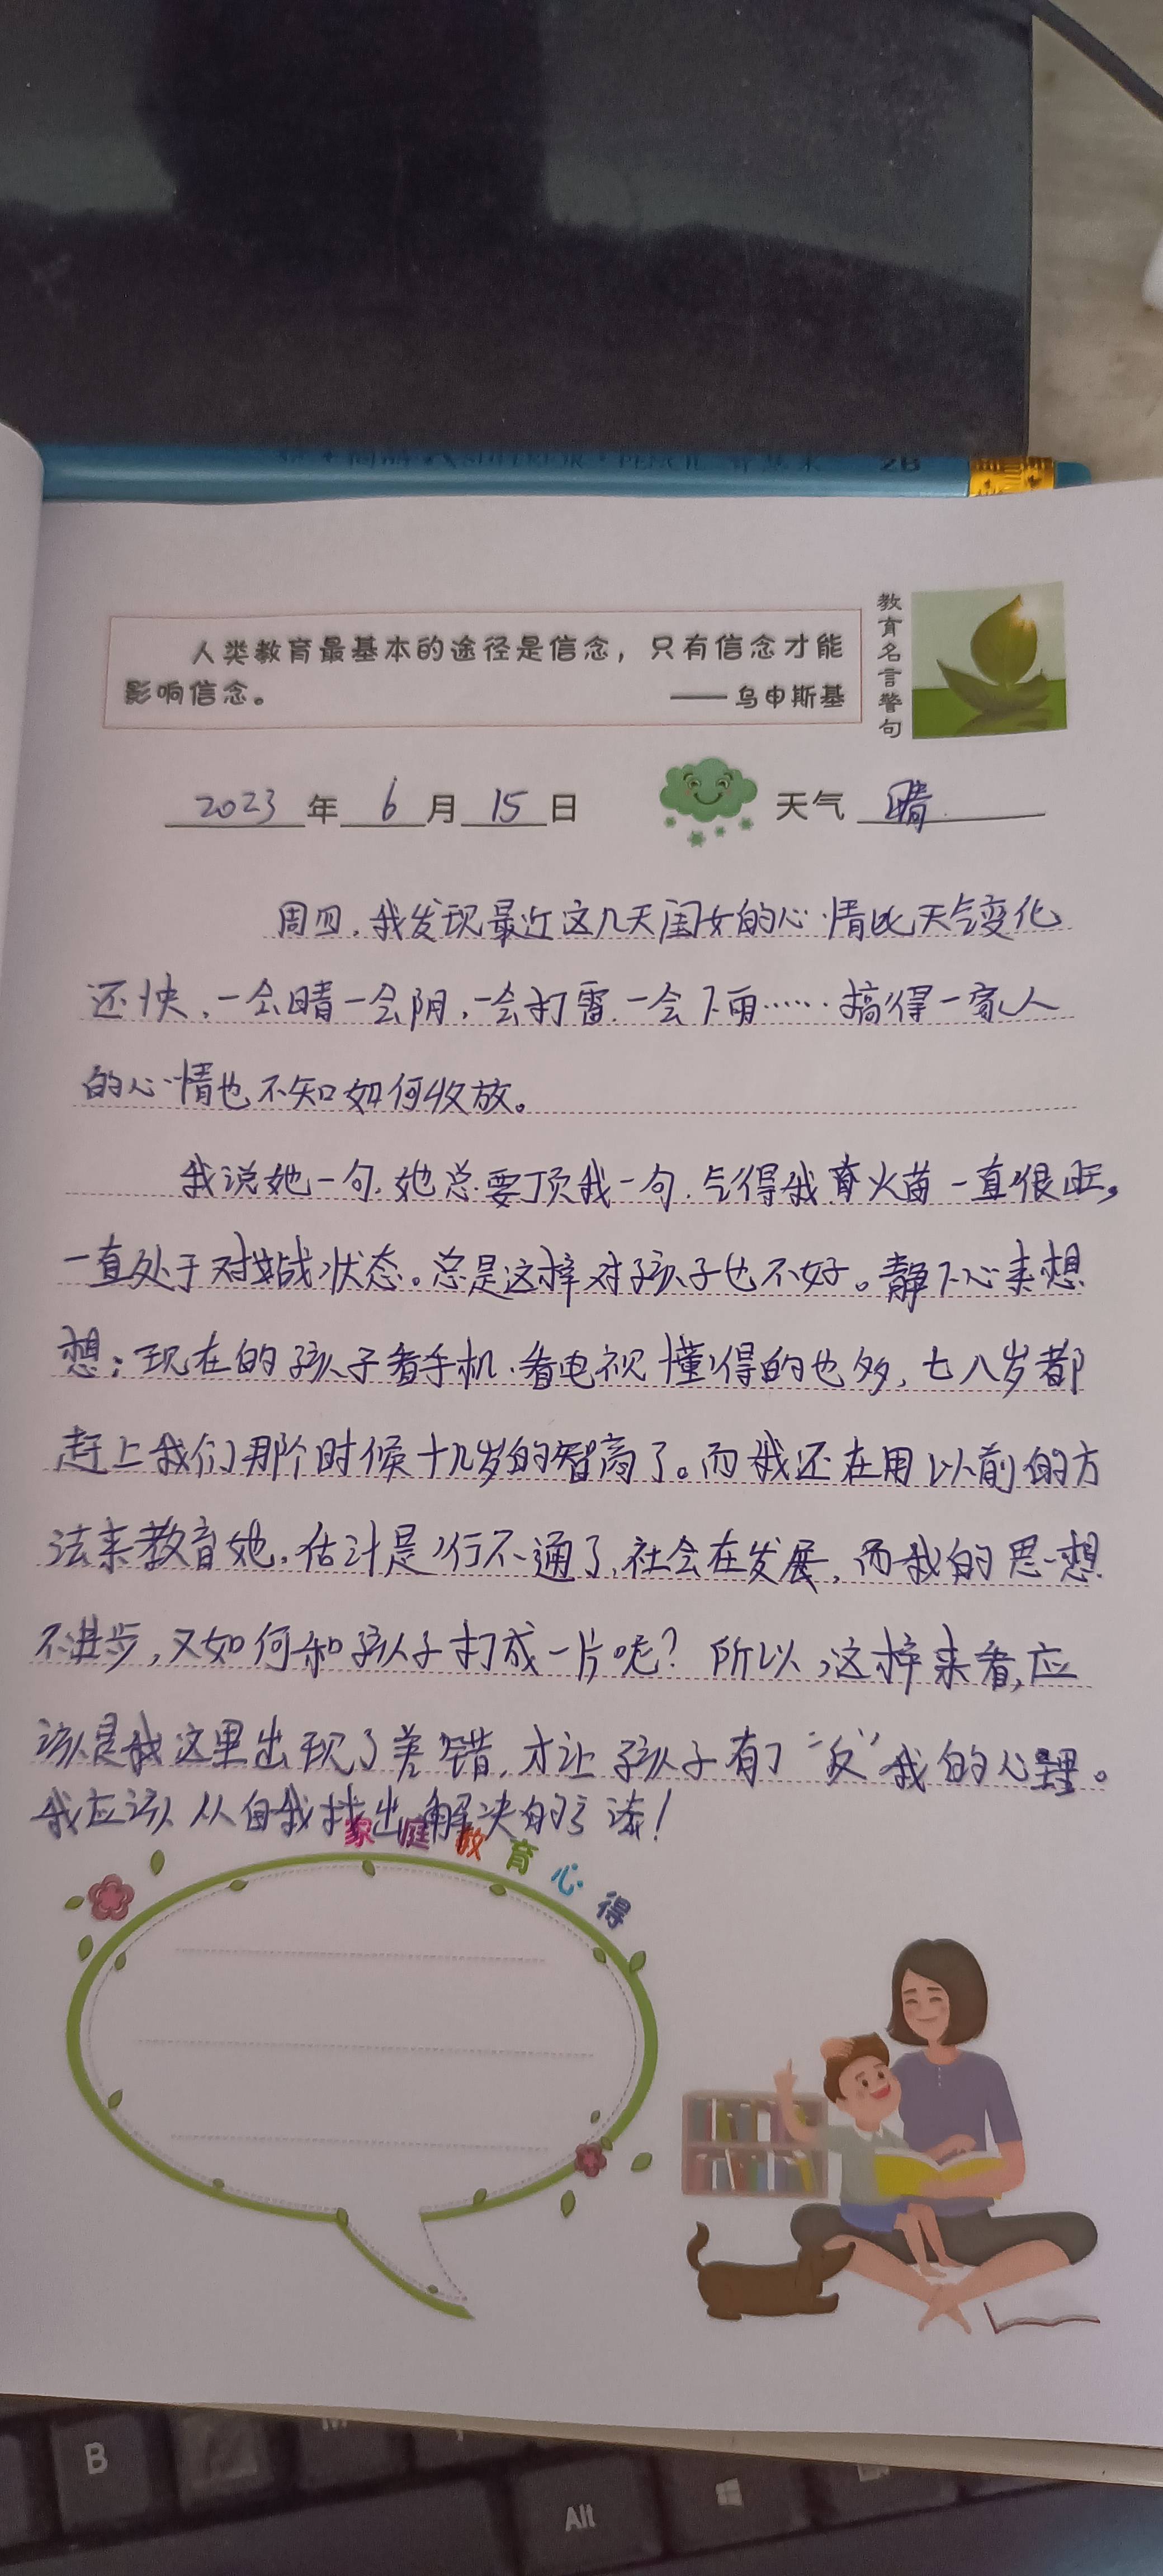 SUPERIOR · PENCIL
2B
人类教育最基本的途径是信念，只有信念才能
影响信念。
——乌申斯基
教育名言警句
2023 年 6 月 15 日 天气 晴
周四，我发现最近这几天闺女的心情比天气变化
还快，一会晴一会阴，一会打雷一会下雨……搞得一家人
的心情也不知如何收放。
我说她一句，她总要顶我一句，气得我 火苗一直很旺，
一直处于对战状态。总是这样对孩子也不好。静下心来想
想：现在的孩子看手机、看电视懂得的也多，七八岁都
赶上我们那个时候十几岁的智商了。而我还在用以前的方
法来教育她，估计是行不通了，社会在发展，而我的思想
不进步，又如何和孩子打成一片呢？所以，这样来看，应
该是我这里出现了差错，才让孩子有了“反”我的心理。
我应该从自我找出解决的方法！
家庭教育心得
B
Alt